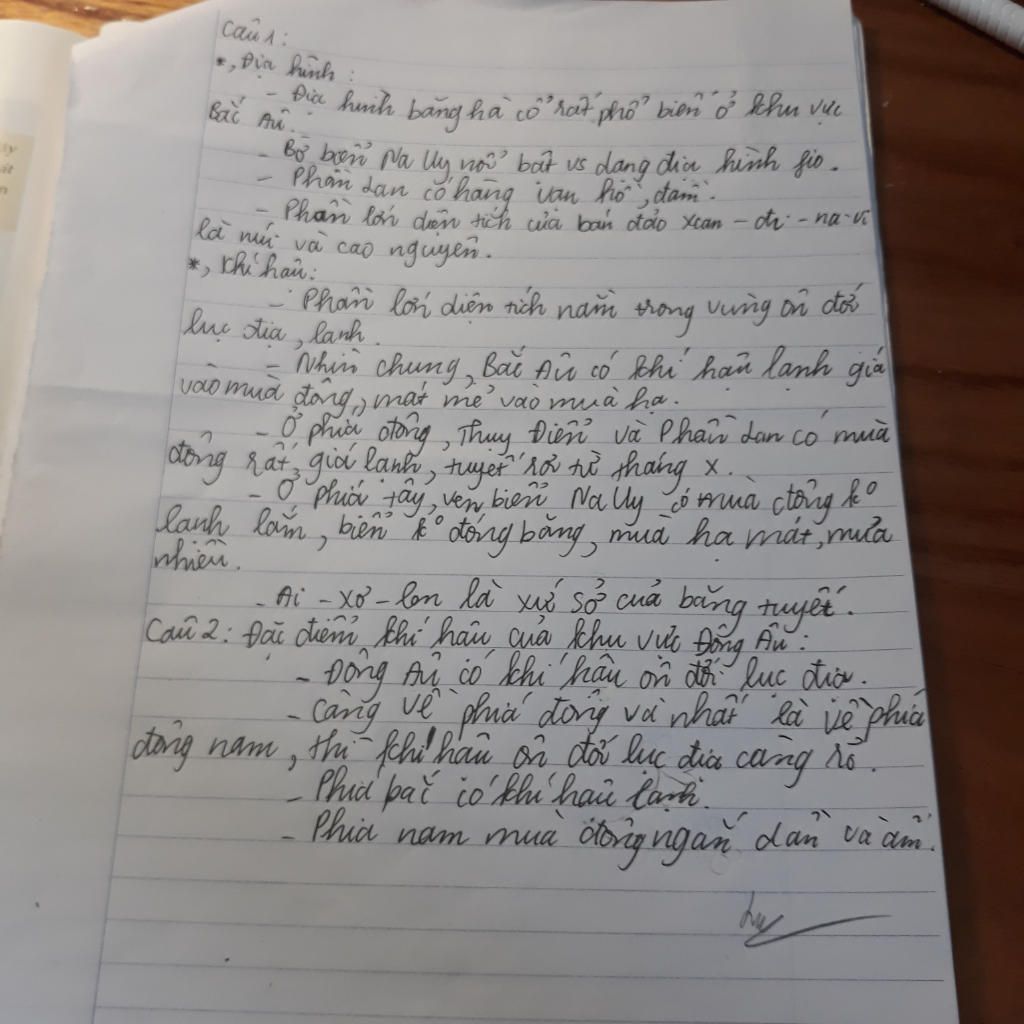 Câu 1:
*, Địa hình:
- Địa hình băng hà cổ rất phổ biến ở khu vực
Bắc Âu.
- Bờ biển Na Uy nổi bật vs dạng địa hình fio.
- Phần Lan có hàng vạn hồ, đầm.
- Phần lớn diện tích của bán đảo Xcan-đi-na-vi
là núi và cao nguyên.
*, Khí hậu:
- Phần lớn diện tích nằm trong vùng ôn đới
lục địa, lạnh.
- Nhìn chung, Bắc Âu có khí hậu lạnh giá
vào mùa đông, mát mẻ vào mùa hạ.
- Ở phía đông, Thụy Điển và Phần Lan có mùa
đông rất giá lạnh, tuyết rơi từ tháng X.
- Ở phía tây, ven biển Na Uy có mùa đông k°
lạnh lắm, biển k° đóng băng, mùa hạ mát, mưa
nhiều.
- Ai-xơ-len là xứ sở của băng tuyết.
Câu 2: Đặc điểm khí hậu của khu vực Đông Âu:
- Đông Âu có khí hậu ôn đới lục địa.
- Càng về phía đông và nhất là về phía
đông nam, thì khí hậu ôn đới lục địa càng rõ.
- Phía bắc có khí hậu lạnh.
- Phía nam mùa đông ngắn dần và ấm.